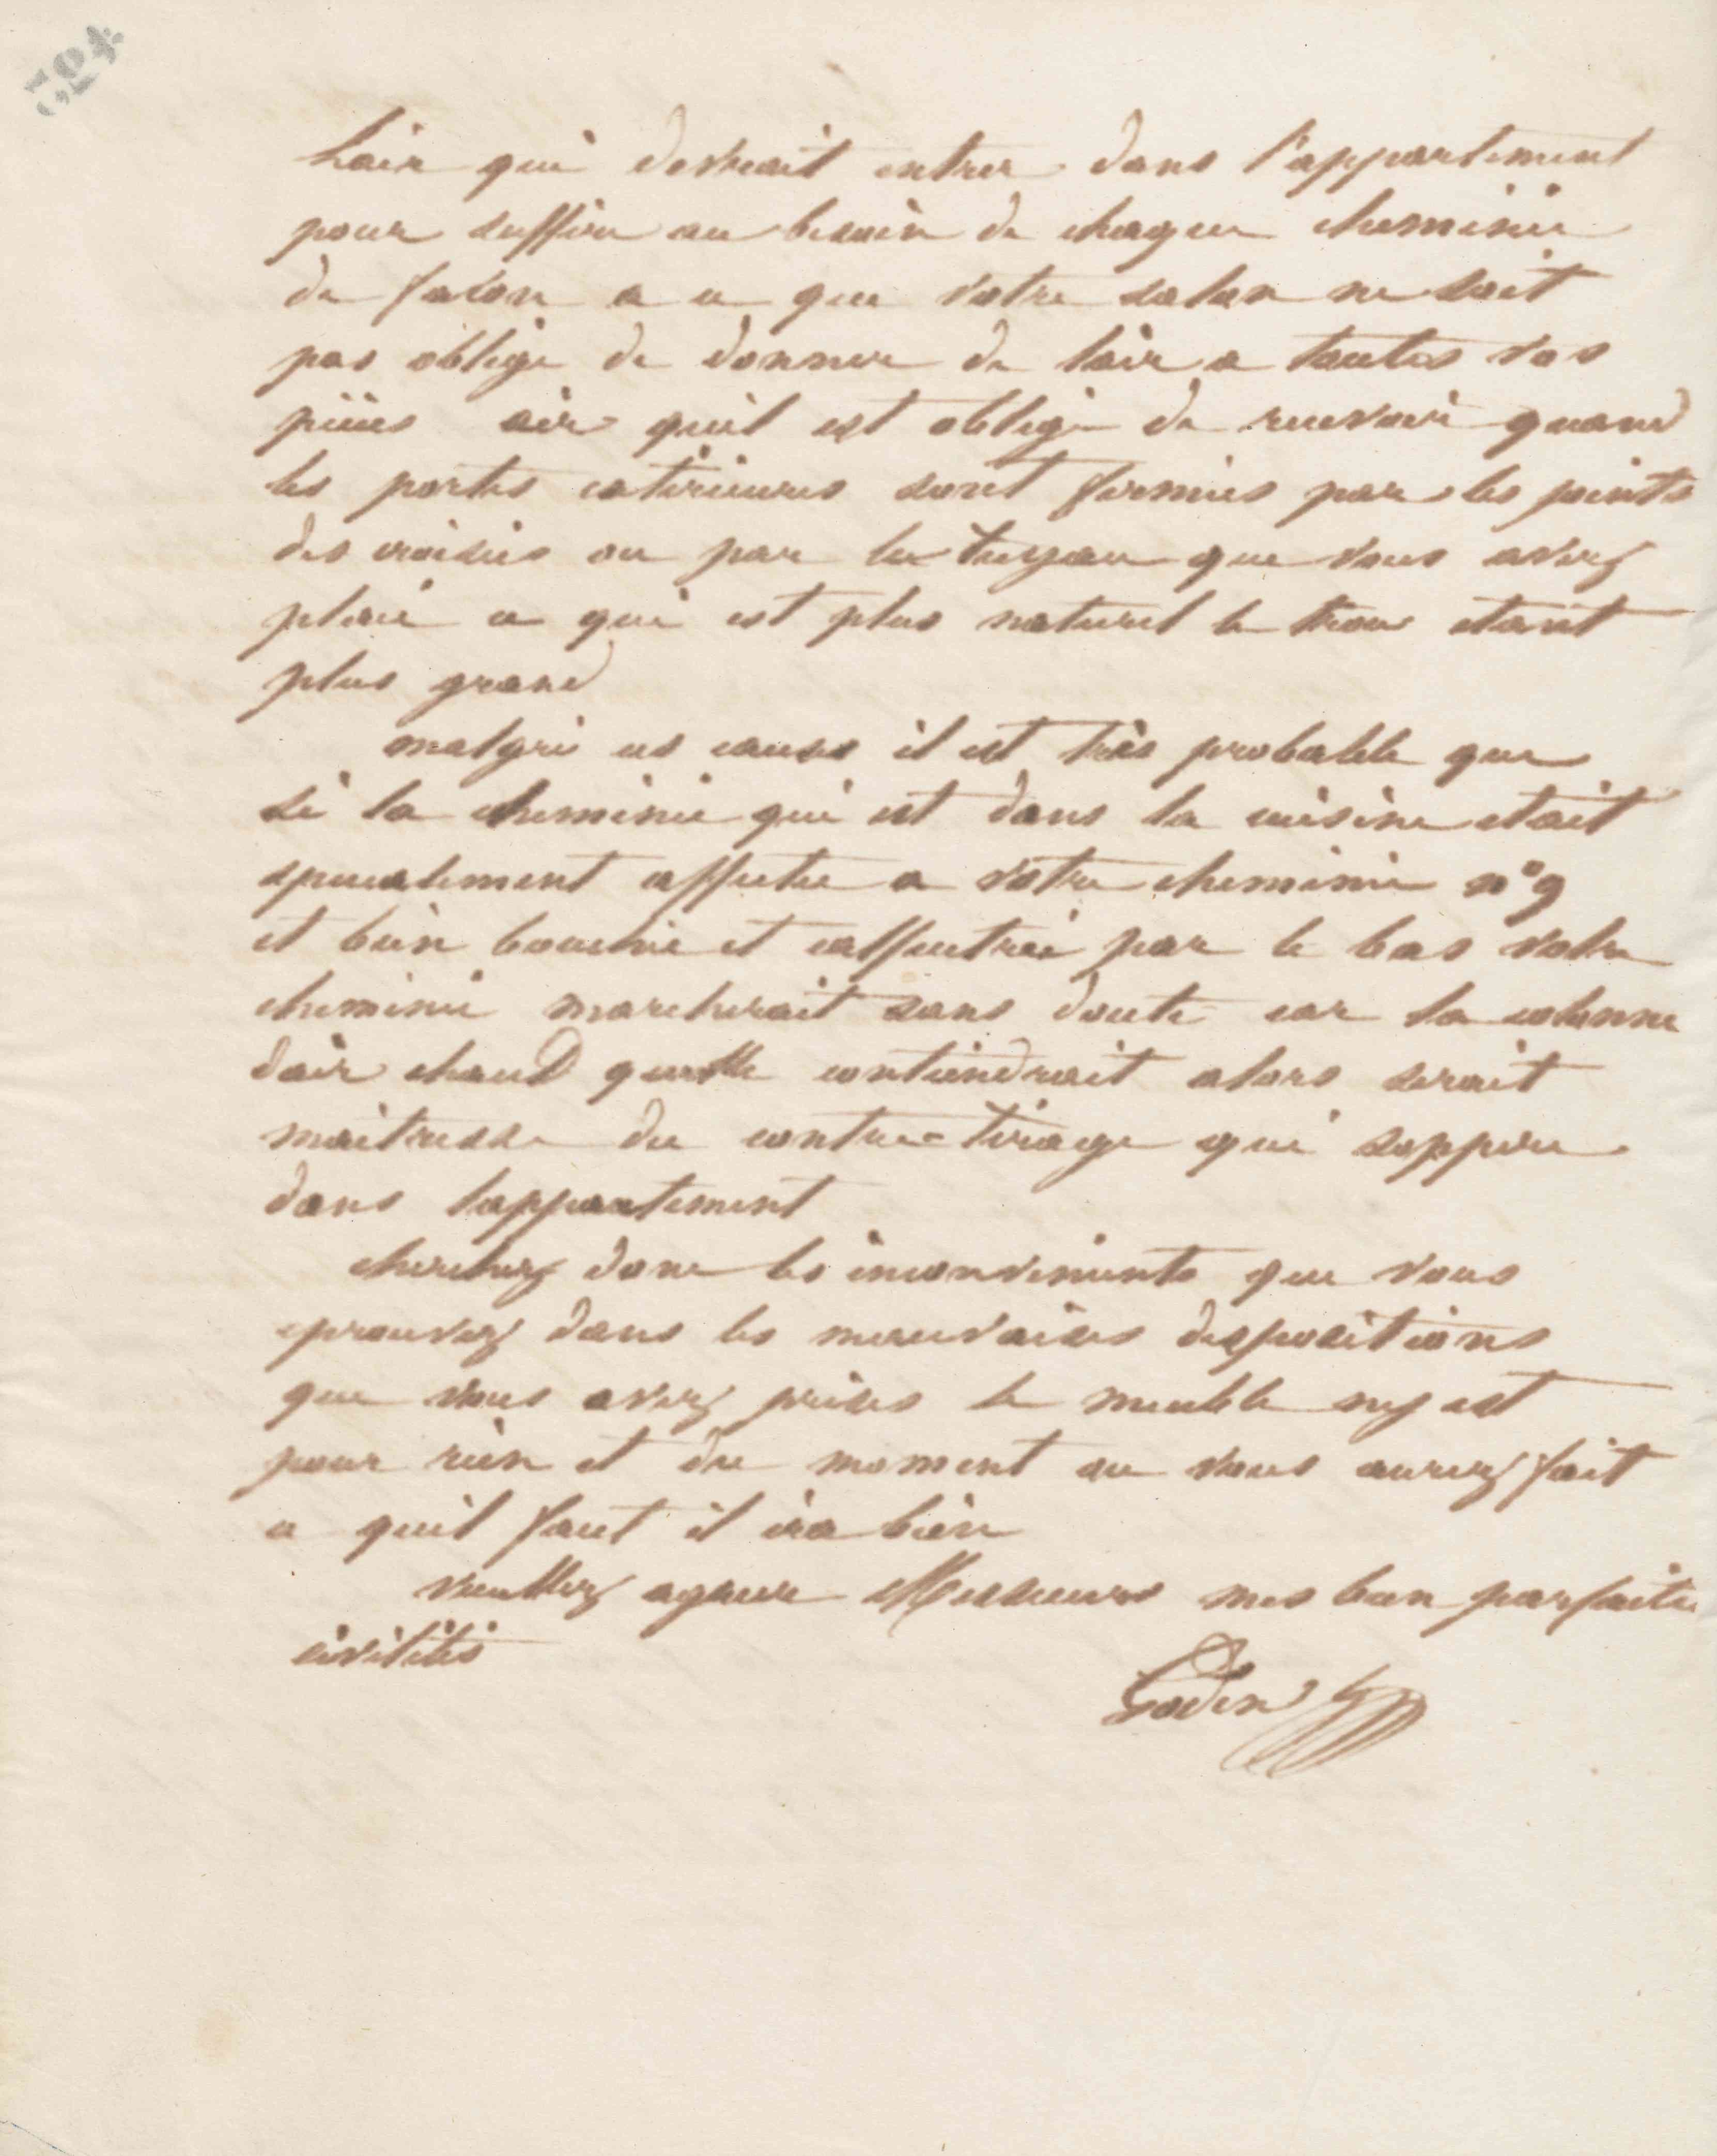 524
lair qui devrait entrer dans l'appartement
pour suffire au besoin de chaque cheminée
de facon a ce que votre salon ne soit
pas obligé de donner de lair a toutes vos
pièces air quil est obligé de recevoir quand
les portes extérieures sont fermées par les joints
des croisées ou par le tuyau que vous avez
placé ce qui est plus naturel le trou etant
plus grand
malgré ces causes il est très probable que
si la cheminée qui est dans la cuisine etait
specialement affectée a votre cheminée n° 9
et bien bouchée et calfeutrée par le bas votre
cheminée marcherait sans doute car la colonne
dair chaud quelle contiendrait alors serait
maitresse du contre-tirage qui sopère
dans lappartement
cherchez donc les inconvenients que vous
eprouvez dans les mauvaises dispositions
que vous avez prises le meuble ny est
pour rien et du moment ou vous aurez fait
ce quil faut il ira bien
veuillez agreer Messieurs mes bien parfaites
civilités
Godin